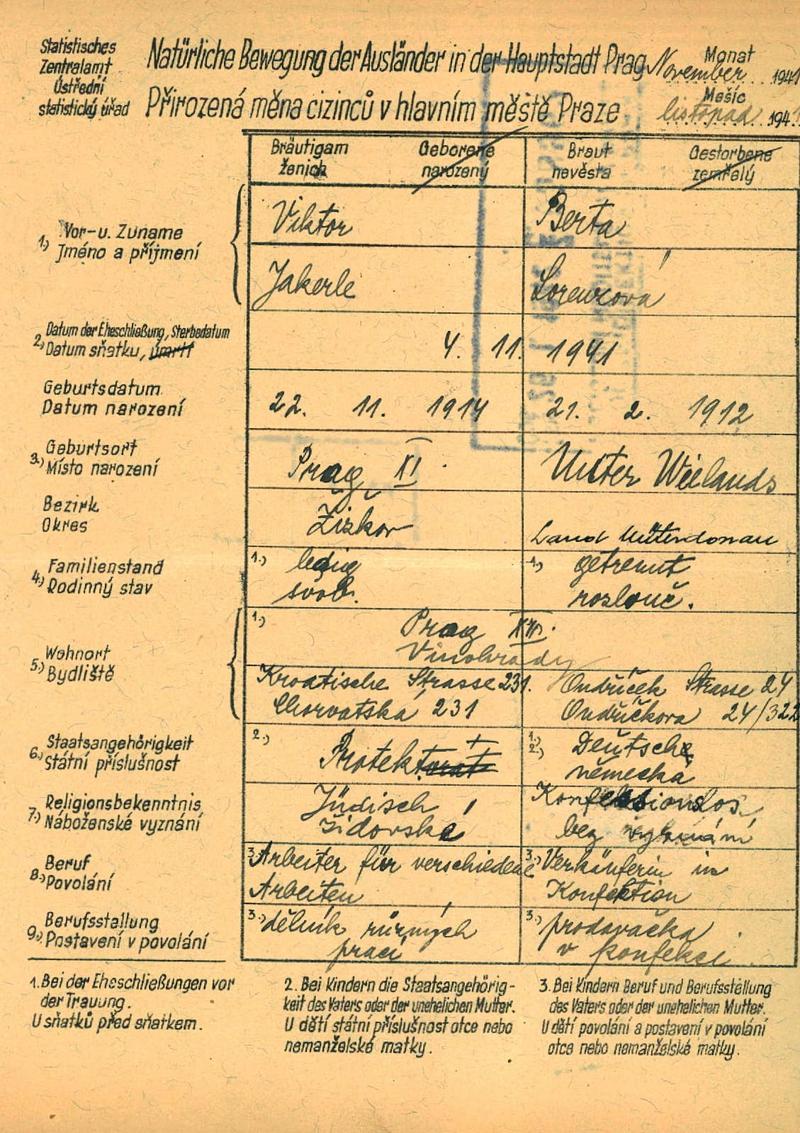 Statistisches
Zentralamt
Ústřední
statistický úřad
Natürliche Bewegung der Ausländer in der Hauptstadt Prag
Přirozená měna cizinců v hlavním městě Praze
Monat
November 1941
Měsíc
listopad 194
Bräutigam
ženich
Geborene
narozený
Braut
nevěsta
Gestorbene
zemřelý
1.) Vor- u. Zuname
Jméno a příjmení
Viktor
Berta
Jakerle
Lorenzová
2.) Datum der Eheschließung, Sterbedatum
Datum sňatku, úmrtí
4. 11. 1941
Geburtsdatum
Datum narození
22. 11. 1914
21. 2. 1912
3.) Geburtsort
Místo narození
Prag XI.
Unter
Bezirk
Okres
Žižkov
Land
4.) Familienstand
Rodinný stav
1.) ledig
svob.
1.) getrennt
rozlouč.
5.) Wohnort
Bydliště
1.) Prag
Vinohrady
Kroatische Strasse 231.
Chorvatska 231
Ondříček Strasse 24
Ondříčkova 24/322
6.) Staatsangehörigkeit
Státní příslušnost
2.) Protektorat
1.)
2.) Deutsche
německá
7.) Religionsbekenntnis
Náboženské vyznání
Jüdisch
židovské
Konfessionslos
bez vyznání
8.) Beruf
Povolání
3.) Arbeiter für verschiedene
Arbeiten
3.) Verkäuferin in
Konfektion
9.) Berufsstellung
Postavení v povolání
3.) dělník různých
prací
3.) prodavačka
v konfekci.
1. Bei der Eheschließungen vor
der Trauung.
U sňatků před sňatkem.
2. Bei Kindern die Staatsangehörig-
keit des Vaters oder der unehelichen Mutter.
U dětí státní příslušnost otce nebo
nemanželské matky.
3. Bei Kindern Beruf und Berufsstellung
des Vaters oder der unehelichen Mutter.
U dětí povolání a postavení v povolání
otce nebo nemanželské matky.